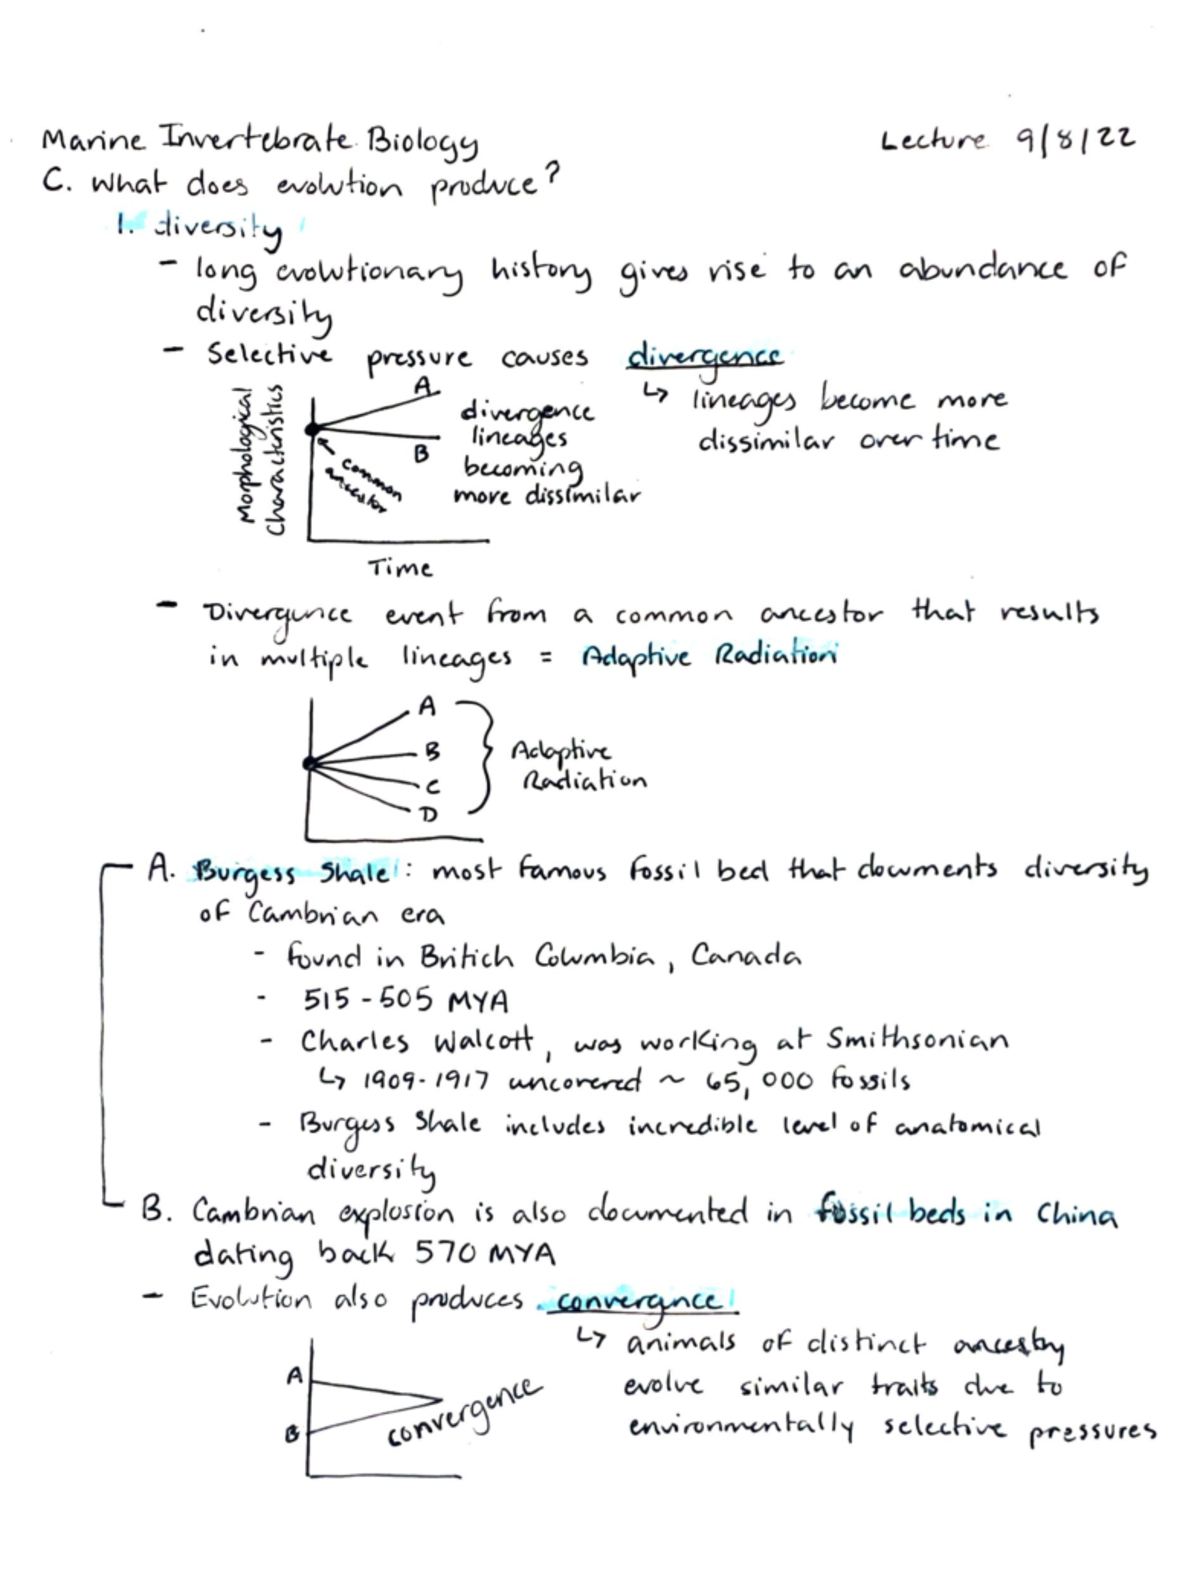 Marine Invertebrate Biology
Lecture 9/8/22
C. What does evolution produce?
1. diversity
- long evolutionary history gives rise to an abundance of
diversity
- Selective pressure causes divergence
↳ lineages become more
dissimilar over time
Morphological
Characteristics
A
B
common
ancestor
divergence
lineages
becoming
more dissimilar
Time
- Divergence event from a common ancestor that results
in multiple lineages = Adaptive Radiation
A
B
C
D
Adaptive
Radiation
A. Burgess Shale: most famous fossil bed that documents diversity
of Cambrian era
- found in Britich Columbia, Canada
- 515-505 MYA
- Charles Walcott, was working at Smithsonian
↳ 1909-1917 uncovered ~ 65,000 fossils
- Burgess Shale includes incredible level of anatomical
diversity
B. Cambrian explosion is also documented in fossil beds in China
dating back 570 MYA
- Evolution also produces convergnce
↳ animals of distinct ancestry
evolve similar traits due to
environmentally selective pressures
A
B
convergence